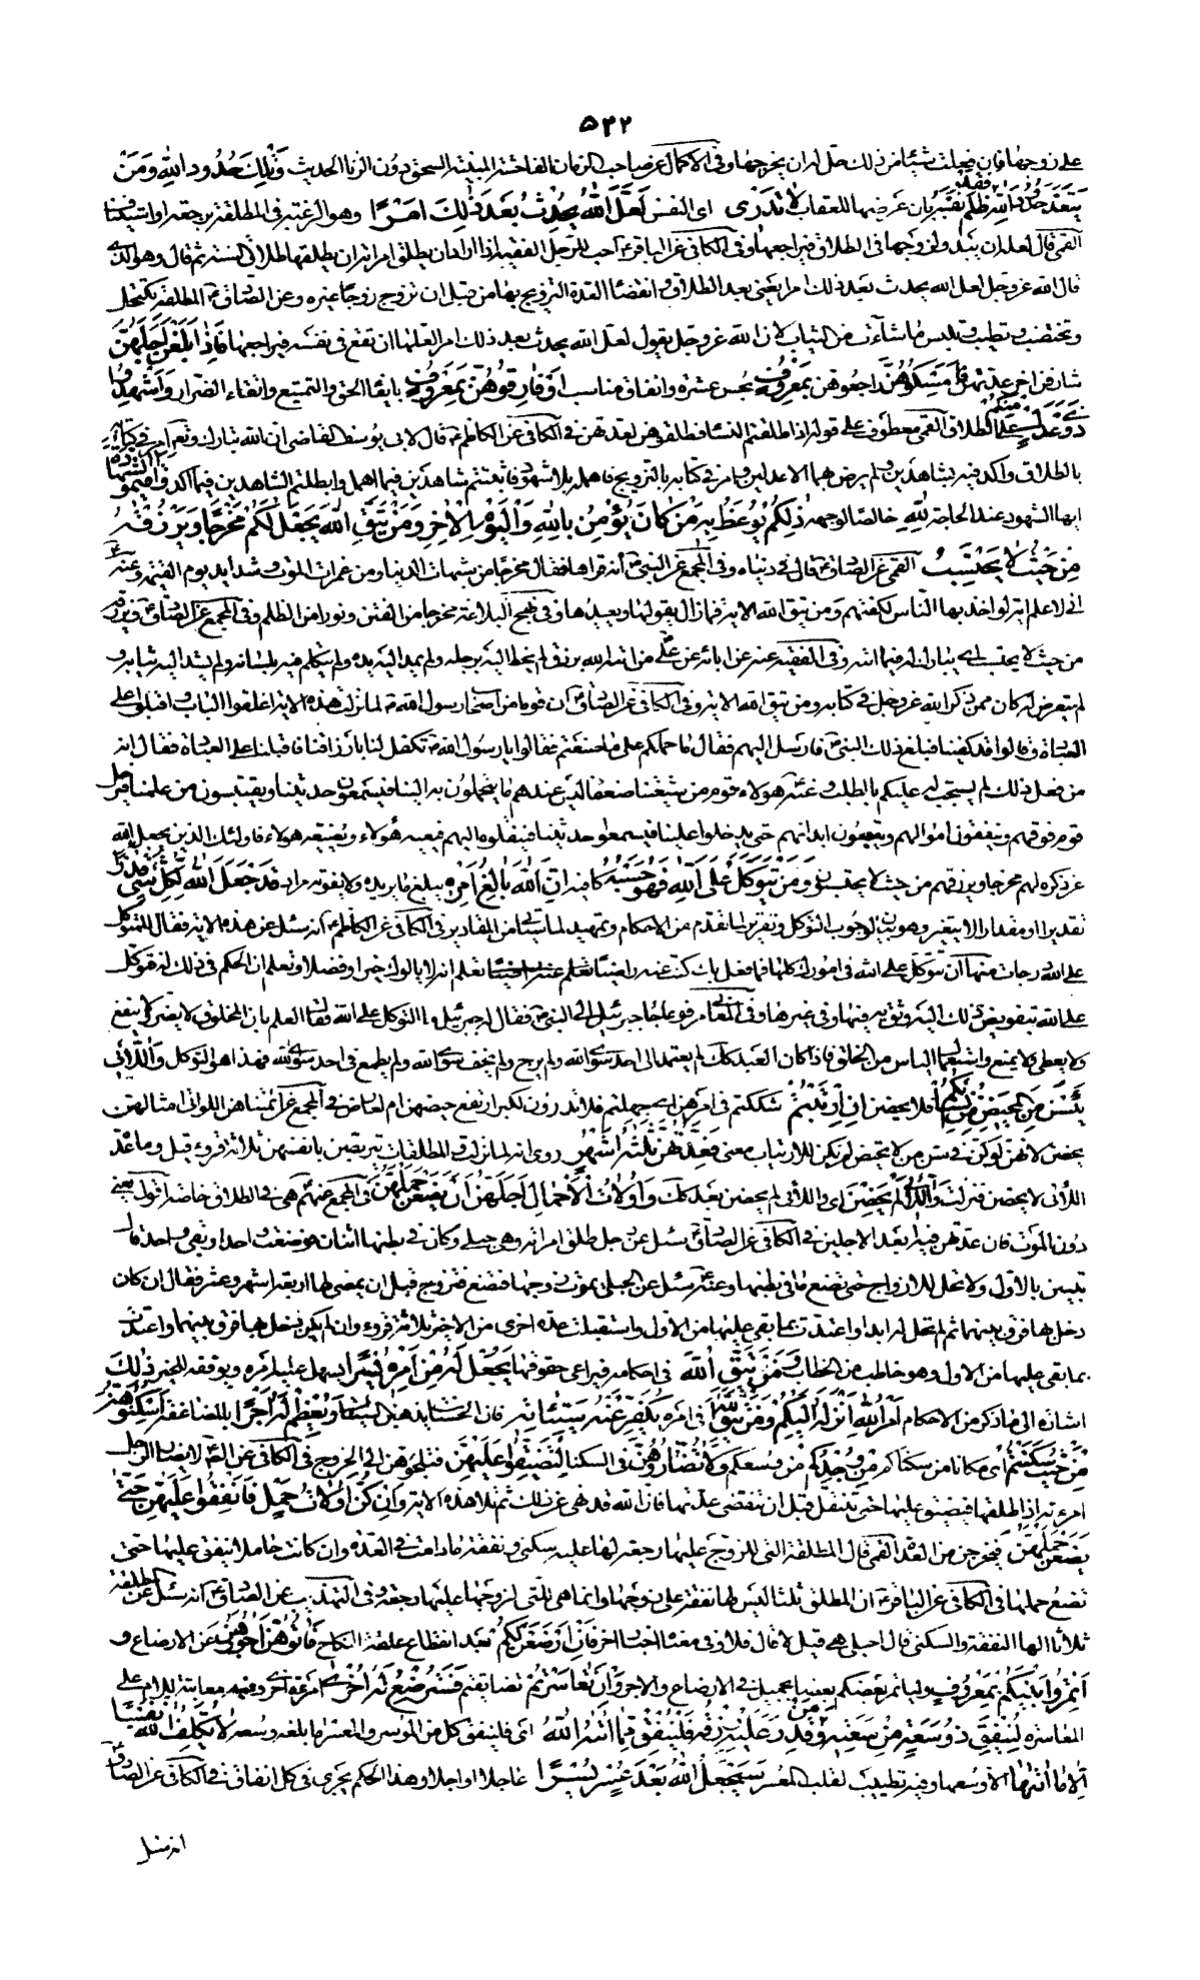 ٥٣٢
على زوجها فان فعلت شيئا من ذلك حل له ان يخرجها وفى الاكمال عن صاحب الزمان الفاحشة المبينة السحق دون الزنا الحديث وَتِلْكَ حُدُودُ اللّهِ وَمَنْ
يَتَعَدَّ حُدُودَ اللّهِ فَقَدْ ظَلَمَ نَفْسَهُ بان عرضها للعقاب لا تَدْرى اى النفس لَعَلَّ اللّهَ يُحْدِثُ بَعْدَ ذلِكَ اَمْرًا وهو الرغبة فى المطلقة برجعة او استيناف
القمى قال لعله ان يبدو لزوجها فى الطلاق فيراجعها وفى الكافى عن الباقر ع احب للرجل الفقيه اذا اراد ان يطلق امراته ان يطلقها طلاق السنة ثم قال وهو الذى
قال الله عز وجل لعل الله يحدث بعد ذلك امرا يعنى بعد الطلاق وانقضاء العدة التزويج بها من قبل ان تزوج زوجا غيره وعن الصادق ع المطلقة تكتحل
وتختضب وتطيب وتلبس ما شاءت من الثياب لان الله عز وجل يقول لعل الله يحدث بعد ذلك امرا لعلها ان تقع فى نفسه فيراجعها فَاِذا بَلَغْنَ اَجَلَهُنَّ
شارفن اخر عدتهن فَاَمْسِكُوهُنَّ راجعوهن بِمَعْرُوفٍ بحسن عشرة وانفاق مناسب اَوْ فارِقُوهُنَّ بِمَعْرُوفٍ بايفاء الحق والتمتيع واتقاء الضرار وَاَشْهِدُوا
ذَوَىْ عَدْلٍ مِنْكُمْ على الطلاق القمى معطوف على قوله اذا طلقتم النساء فطلقوهن لعدتهن فى الكافى عن الكاظم ع قال لابى يوسف القاضى ان الله تبارك وتعالى امر فى كتابه
بالطلاق واكد فيه بشاهدين ولم يرض بهما الا عدلين وامر فى كتابه بالتزويج فاهمله بلا شهود فاثبتتم شاهدين فيما اهمل وابطلتم الشاهدين فيما اكد وَاَقيمُوا الشَّهادَةَ
ايها الشهود عند الحاجة لِلّهِ خالصا لوجهه ذلِكُمْ يُوعَظُ بِهِ مَنْ كانَ يُؤْمِنُ بِاللّهِ وَالْيَوْمِ الْاخِرِ وَمَنْ يَتَّقِ اللّهَ يَجْعَلْ لَهُ مَخْرَجًا وَيَرْزُقْهُ
مِنْ حَيْثُ لا يَحْتَسِبُ القمى عن الصادق ع قال فى دنياه وفى المجمع عن النبى ص انه قراها فقال مخرجا من شبهات الدنيا ومن غمرات الموت وشدايد يوم القيمة وعنه ص
انى لاعلم اية لو اخذ بها الناس لكفتهم ومن يتق الله الاية فما زال يقولها ويعيدها وفى نهج البلاغة مخرجا من الفتن ونورا من الظلم وفى المجمع عن الصادق ع ويرزقه
من حيث لا يحتسب اى يبارك له فيما اتاه وفى الفقيه عنه عن ابائه عن على ع من اتاه الله برزق لم يخط اليه برجله ولم يمد اليه يده ولم يتكلم فيه بلسانه ولم يشد اليه ثيابه و
لم يتعرض له كان ممن ذكر الله عز وجل فى كتابه ومن يتق الله الاية وفى الكافى عن الصادق ع ان قوما من اصحاب رسول الله ص لما نزلت هذه الاية اغلقوا الباب واقبلوا على
العبادة وقالوا قد كفينا فبلغ ذلك النبى ص فارسل اليهم فقال ما حملكم على ما صنعتم فقالوا يا رسول الله ص تكفل لنا بارزاقنا فاقبلنا على العبادة فقال انه
من فعل ذلك لم يستجب له عليكم بالطلب وعنه ع هؤلاء قوم من شيعتنا ضعفاء ليس عندهم ما يتحملون به الينا فيسمعون حديثنا ويقتبسون من علمنا فيرحل
قوم فوقهم وينفقون اموالهم ويتعبون ابدانهم حتى يدخلوا علينا فيسمعوا حديثنا فينقلوه اليهم فيعيه هؤلاء ويضيعه هؤلاء فاولئك الذين يجعل الله
عز ذكره لهم مخرجا ويرزقهم من حيث لا يحتسبون وَمَنْ يَتَوَكَّلْ عَلَى اللّهِ فَهُوَ حَسْبُهُ كافيه اِنَّ اللّهَ بالِغُ اَمْرِهِ يبلغ ما يريده ولا يفوته مراد قَدْ جَعَلَ اللّهُ لِكُلِّ شَىْءٍ قَدْرًا
تقديرا او مقدارا لا يتغير وهو بيان لوجوب التوكل وتقرير لما تقدم من الاحكام وتمهيد لما سياتى من المقادير فى الكافى عن الكاظم ع انه سئل عن هذه الاية فقال للتوكل
على الله درجات منها ان تتوكل على الله فى امورك كلها فما فعل بك كنت عنه راضيا تعلم انه لا يالوك خيرا وفضلا وتعلم ان الحكم فى ذلك له فتوكل
على الله بتفويض ذلك اليه وثق به فيها وفى غيرها وفى المعانى مرفوعا جاء جبرئيل الى النبى ص فقال له يا جبرئيل وما التوكل على الله فقال العلم بان المخلوق لا يضر ولا ينفع
ولا يعطى ولا يمنع واستعمال الياس من الخلق فاذا كان العبد كذلك لم يعتمد الى احد سوى الله ولم يرج ولم يخف سوى الله ولم يطمع فى احد سوى الله فهذا هو التوكل وَاللّائى
يَئِسْنَ مِنَ الْمَحيضِ مِنْ نِسائِكُمْ فلا يحضن اِنِ ارْتَبْتُمْ شككتم فى امرهن اى جهلتم فلا تدرون لكبر ارتفع حيضهن ام لعارض فى المجمع عن ائمتنا هن اللواتى امثالهن
يحضن لانهن لو كن فى سن من لا يحيض لم يكن للارتياب معنى فَعِدَّتُهُنَّ ثَلثَةُ اَشْهُرٍ روى انه لما نزلت والمطلقات يتربصن بانفسهن ثلاثة قروء قيل وما عدة
اللائى لا يحضن فنزلت وَاللّائى لَمْ يَحِضْنَ اى واللائى لم يحضن بعد كذلك وَاُولاتُ الْاَحْمالِ اَجَلُهُنَّ اَنْ يَضَعْنَ حَمْلَهُنَّ فى المجمع عنهم ع هى فى الطلاق خاصة اقول يعنى
دون الموت فان عدتهن فيه ابعد الاجلين فى الكافى عن الصادق ع سئل عن رجل طلق امراته وهى حبلى وكان فى بطنها اثنان فوضعت واحدا وبقى واحد قال
تبين بالاول ولا تحل للازواج حتى تضع ما فى بطنها وعنه ع سئل عن الحبلى يموت زوجها فتضع فتزوج قبل ان يمضى لها اربعة اشهر وعشر فقال ان كان
دخل بها فرق بينهما ثم لم تحل له ابدا واعتدت بما بقى عليها من الاول واستقبلت عدة اخرى من الاخر ثلاثة قروء وان لم يكن دخل بها فرق بينهما واعتدت
بما بقى عليها من الاول وهو خاطب من الخطاب وَمَنْ يَتَّقِ اللّهَ فى احكامه فيراعى حقوقها يَجْعَلْ لَهُ مِنْ اَمْرِهِ يُسْرًا يسهل عليه امره ويوفقه للخير ذلِكَ
اشارة الى ما ذكر من الاحكام اَمْرُ اللّهِ اَنْزَلَهُ اِلَيْكُمْ وَمَنْ يَتَّقِ اللّهَ فى امره يُكَفِّرْ عَنْهُ سَيِّئاتِه فان الحسنات يذهبن السيئات وَيُعْظِمْ لَهُ اَجْرًا بالمضاعفة اَسْكِنُوهُنَّ
مِنْ حَيْثُ سَكَنْتُمْ اى مكانا من سكناكم مِنْ وُجْدِكُمْ من وسعكم وَلا تُضارُّوهُنَّ فى السكنى لِتُضَيِّقُوا عَلَيْهِنَّ فتلجؤهن الى الخروج فى الكافى عن الصادق ع لا يضار الرجل
امرءته اذا طلقها فيضيق عليها حتى تنتقل قبل ان تنقضى عدتها فان الله قد نهى عن ذلك ثم تلا هذه الاية وَاِنْ كُنَّ اُولاتِ حَمْلٍ فَاَنْفِقُوا عَلَيْهِنَّ حَتّى
يَضَعْنَ حَمْلَهُنَّ فيخرجن من العدة القمى قال المطلقة التى للزوج عليها رجعة لها عليه سكنى ونفقة ما دامت فى العدة وان كانت حاملا ينفق عليها حتى
تضع حملها فى الكافى عن الباقر ع ان المطلقة ثلثا ليس لها نفقة على زوجها وانما هى للتى لزوجها عليها رجعة وفى التهذيب عن الصادق ع انه سئل عن المطلقة
ثلاثا الها النفقة والسكنى قال احبلى هى قيل لا قال فلا وفى معناه اخبار اخر فَاِنْ اَرْضَعْنَ لَكُمْ بعد انقطاع علقة النكاح فَاتُوهُنَّ اُجُورَهُنَّ عن الارضاع و
أتَمِرُوا بَيْنَكُمْ بِمَعْرُوفٍ وليامر بعضكم بعضا بجميل فى الارضاع والاجر وَاِنْ تَعاسَرْتُمْ تضايقتم فَسَتُرْضِعُ لَهُ اُخْرى امرءة اخرى وفيه معاتبة للام على
المعاسرة لِيُنْفِقْ ذُوسَعَةٍ مِنْ سَعَتِهِ وَمَنْ قُدِرَ عَلَيْهِ رِزْقُهُ فَلْيُنْفِقْ مِمّا اتاهُ اللّهُ اى فلينفق كل من الموسر والمعسر ما بلغه وسعه لا يُكَلِّفُ اللّهُ نَفْسًا
اِلّا ما اتاها الا وسعها وفيه تطييب لقلب المعسر سَيَجْعَلُ اللّهُ بَعْدَ عُسْرٍ يُسْرًا عاجلا او اجلا وهذا الحكم يجرى فى كل انفاق فى الكافى عن الصادق
انه سئل